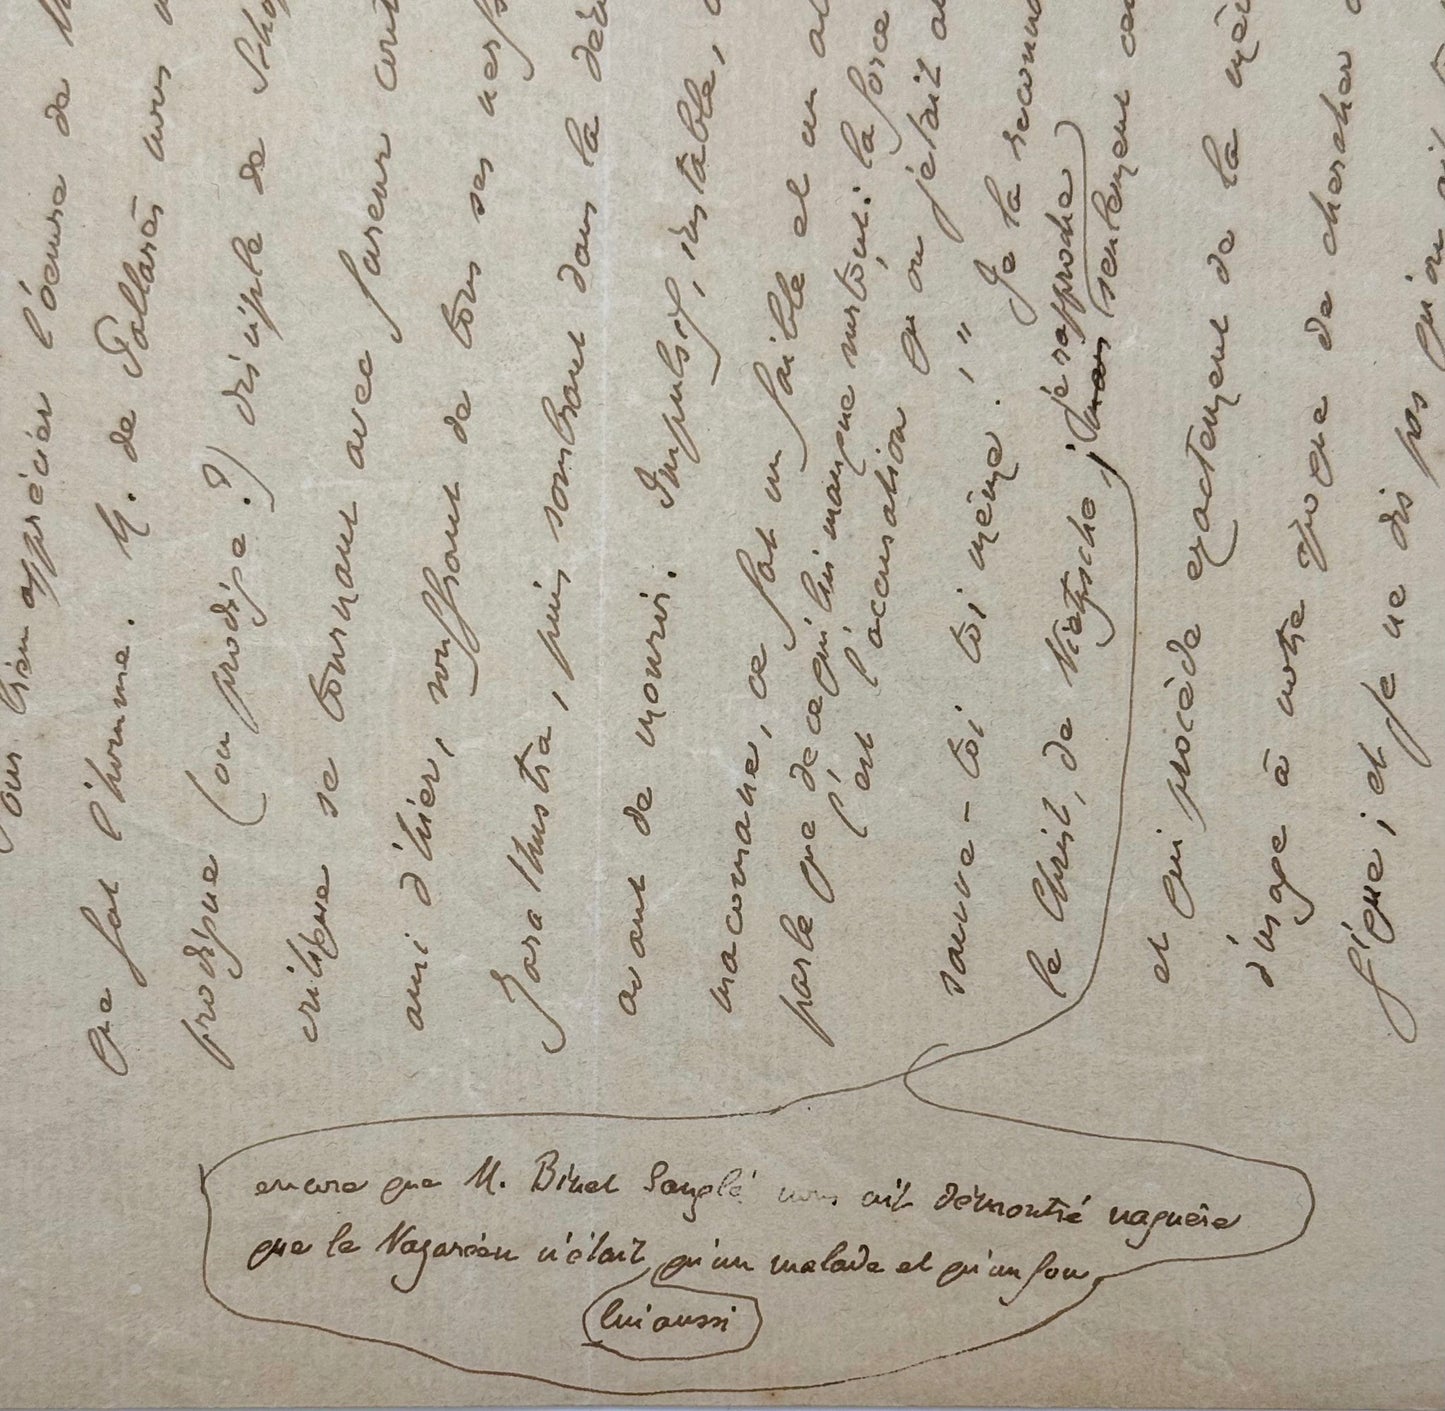 our bien apprécier l'œuvre de
que fut l'homme. M. de Pallarès nous
prodigue (ou prodige?) disciple de Scho
critique se tournant avec fureur cont
ami d'hier, souffrant de tous ses nerfs
Zarathustra, puis sombrant dans la
avant de mourir. Impulsif, instable,
macomane, ce fut un faible et un
parle que de ce qui lui manque surtout: la force
c'est l'accusation qu'on jetait
sauve-toi toi même. " Je la reconn
le Christ, de Nietzsche; je rapproche
mais seulement
et qui procède exactement de la
d'usage à notre époque de chercher
J'ique; et je ne dis pas qu'on ait
encore que M. Binet Sanglé nous ait démontré naguère
que le Nazaréen n'était, qu'un malade et qu'un fou
lui aussi